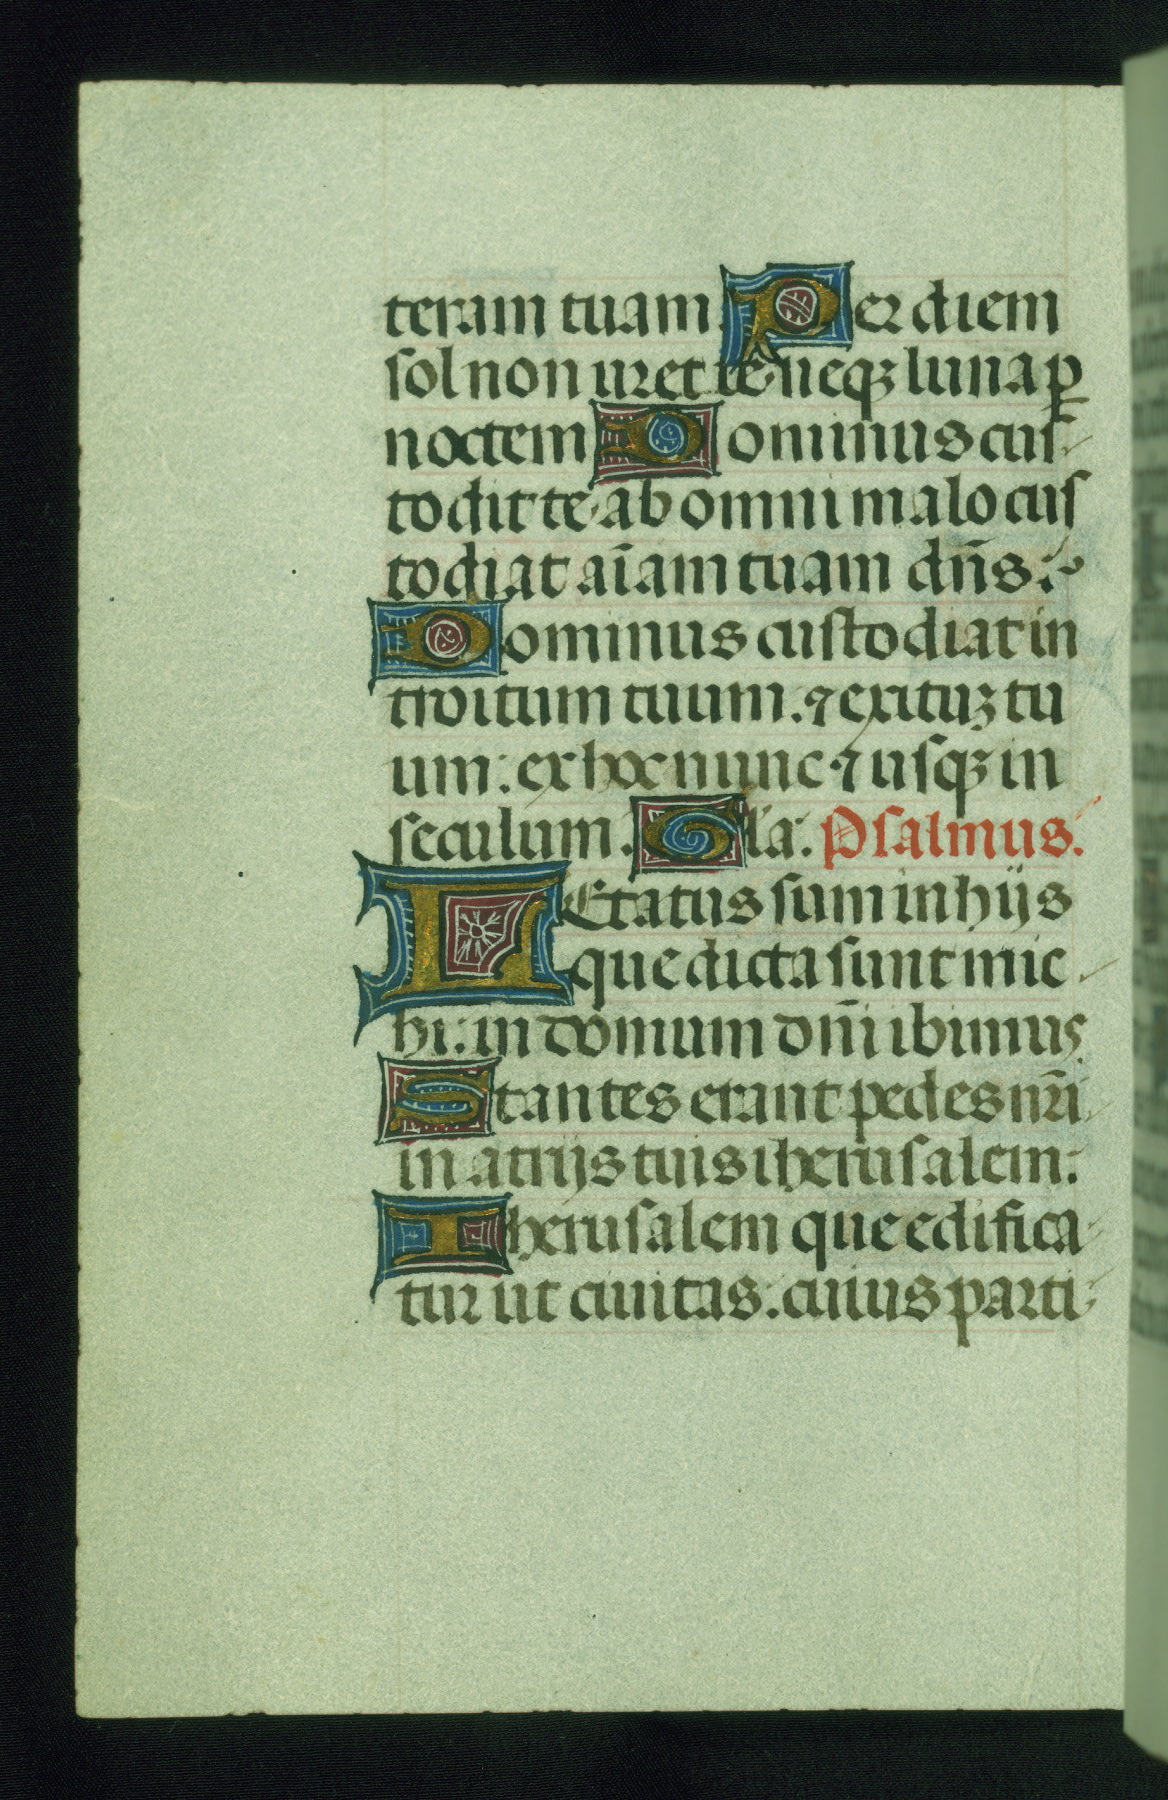 teram tuam. Per diem
sol non uret te: neqꝫ luna ꝑ
noctem Dominus cus-
todit te ab omni malo cus
todiat aīam tuam dn̄s:~
Dominus custodiat in
troitum tuum. ⁊ exituꝫ tu
um: ex hoc nunc ⁊ usqꝫ in
seculum. Gła: Psalmus.
LEtatus sum in hijs
que dicta sunt mic-
hi: in domum dn̄i ibimus
Stantes erant pedes nr̄i
in atrijs tuis iherusalem:
Iherusalem que edifica-
tur ut ciuitas: cuius parti-